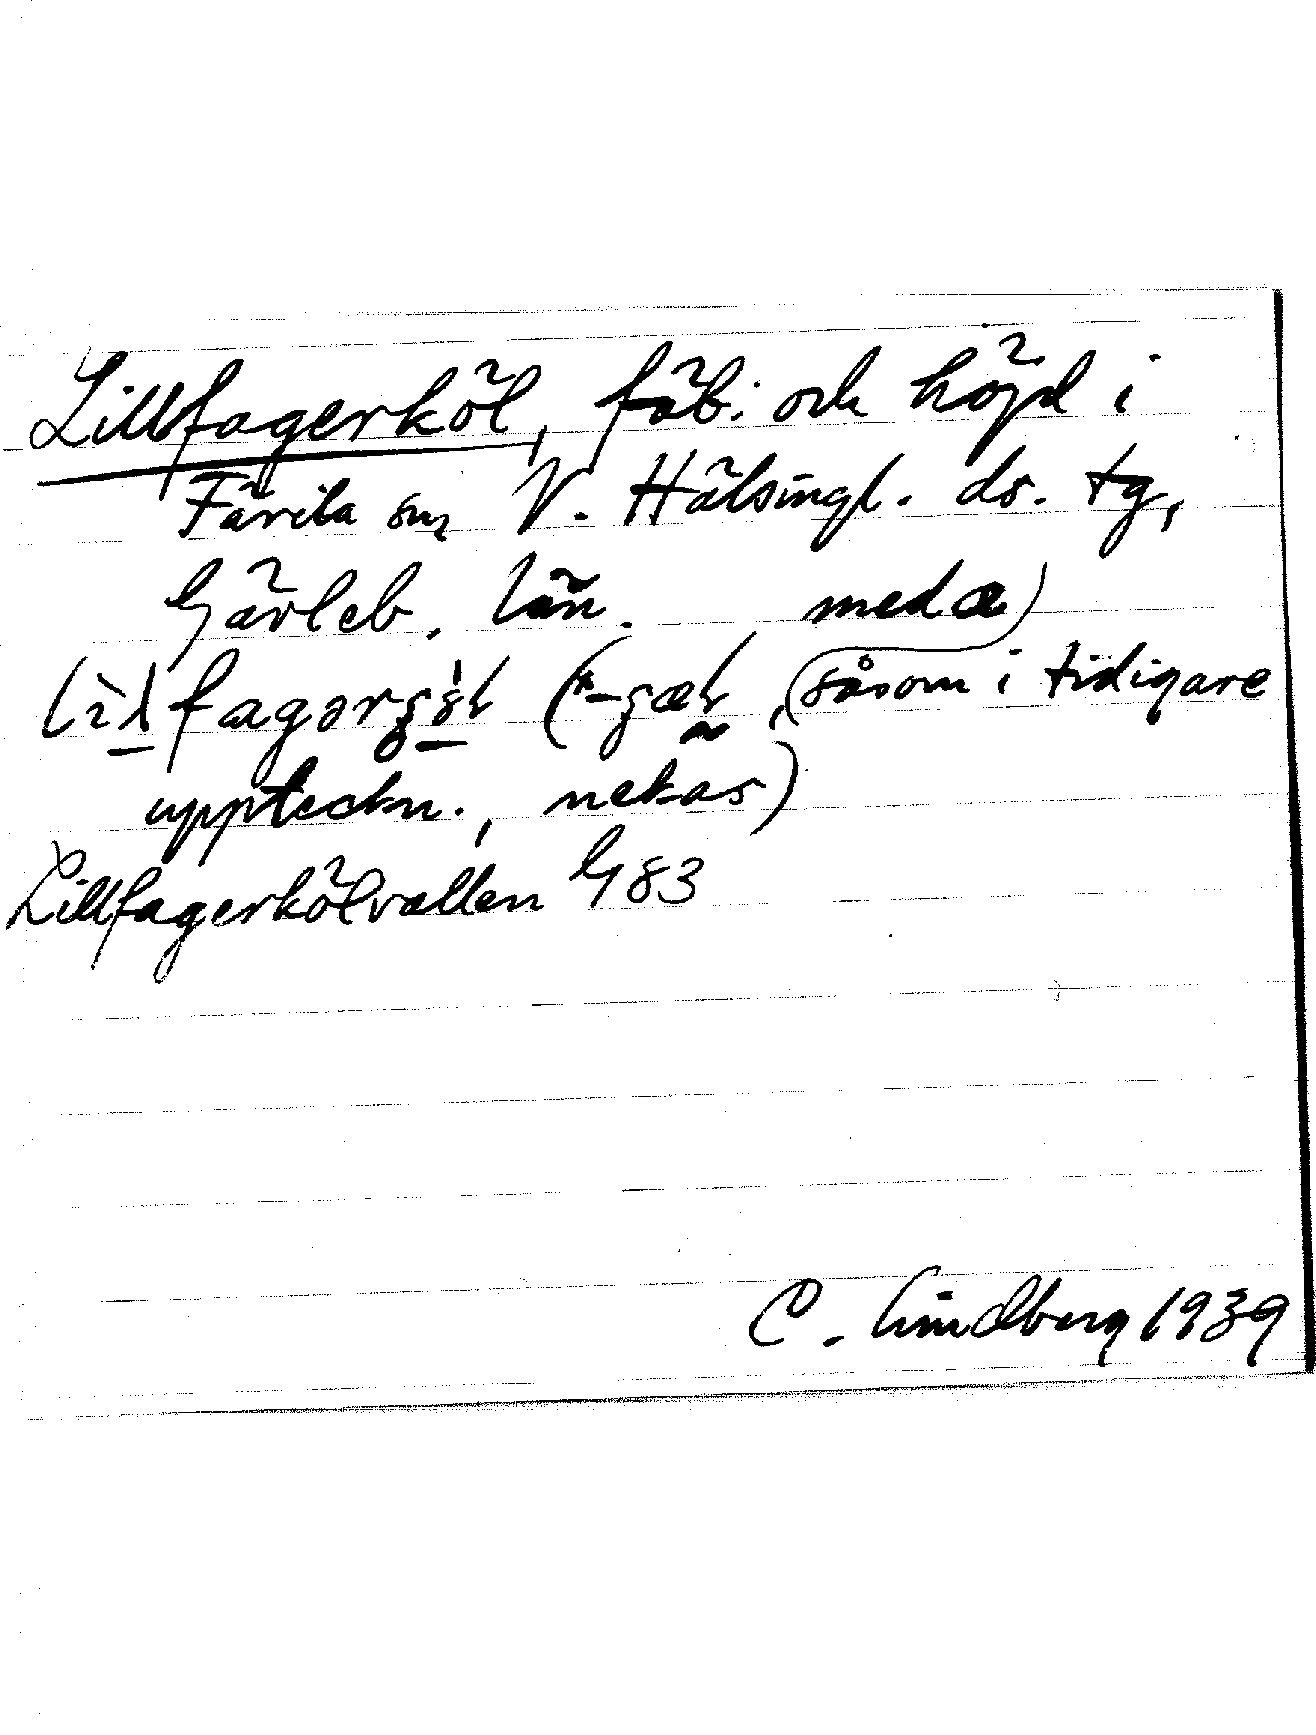 Lillfagerköl, fäb. och höjd i
Färila sn, V. Hälsingl. ds. tg,
Gävleb. län.
med æ)
fagər (*-
(såsom i tidigare
uppteckn., nekas)
Lillfagerkölvallen G 83
C. Lindberg 1939